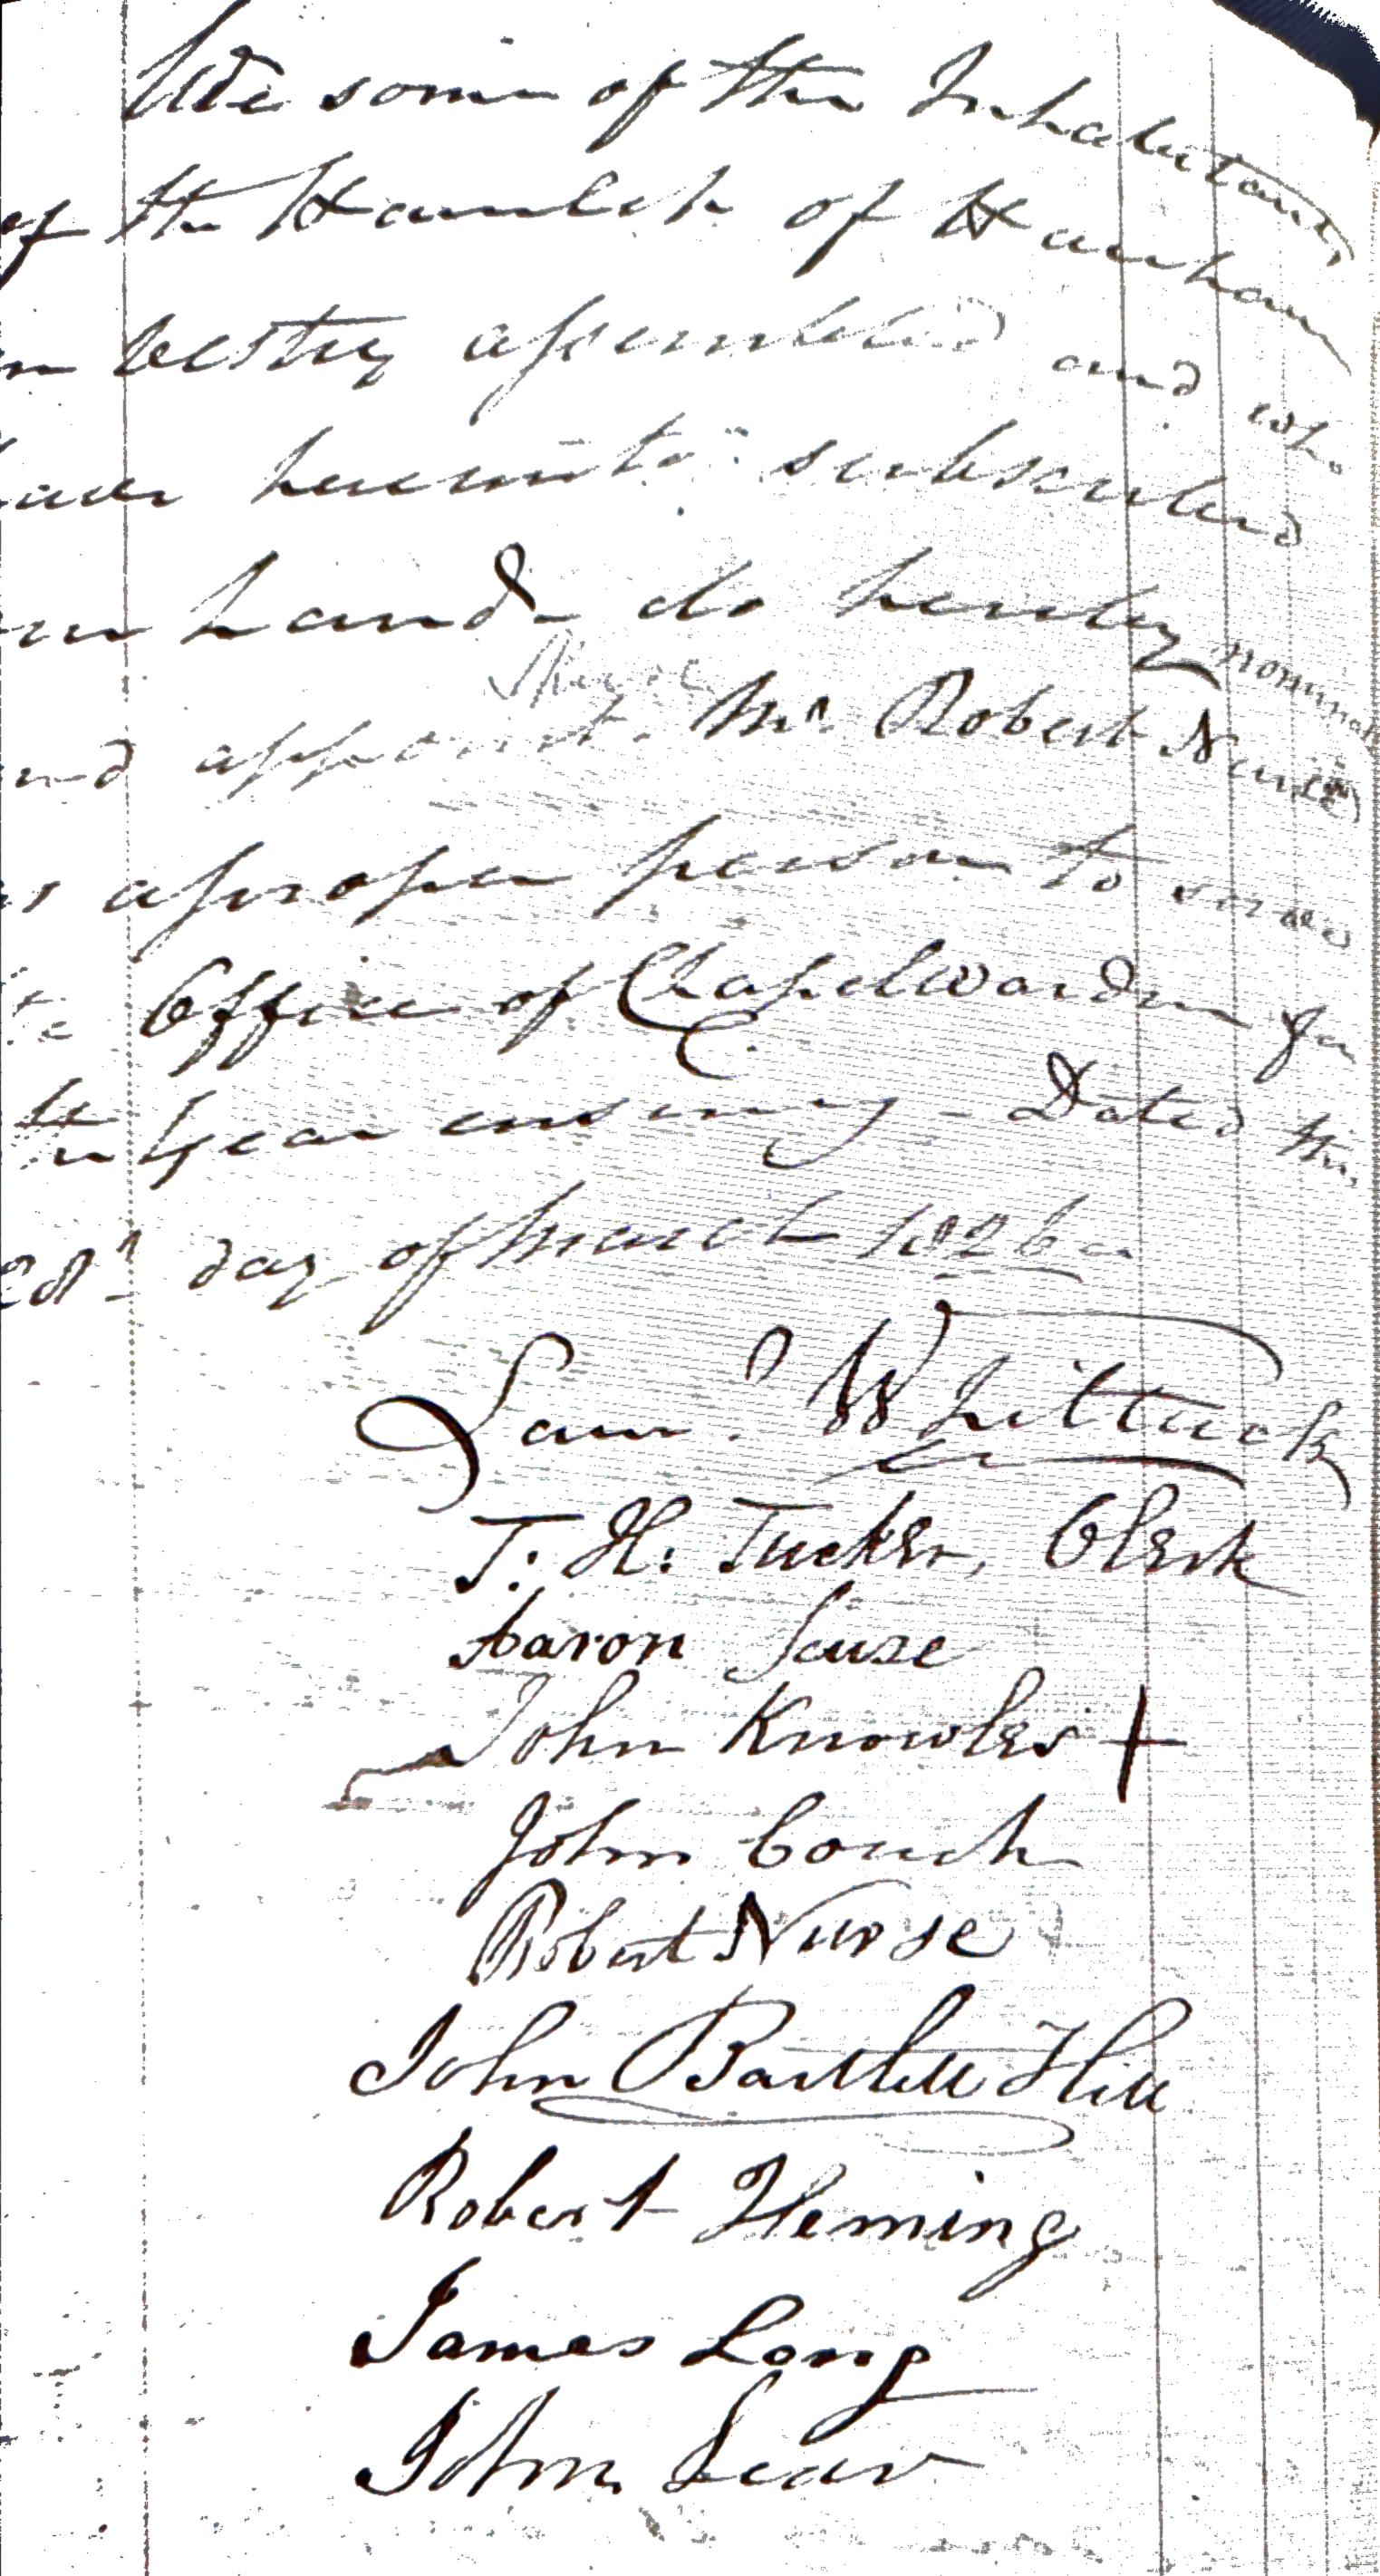 We some of the Inhabitants
of the Hamlet of Hanham
in Vestry assembled and who
have hereunto subscribed
our hand - do hereby nominate
and appoint Mr. Robert Nurse
as a proper person to serve
the Office of Chapelwarden for
the year ensuing - Dated this
28th day of March 1826
Saml. Whittuck
T. H. Tucker, Clerk
Aaron Scuse
John Knowles +
John Couch
Robert Nurse
John Bartlett Hill
Robert Fleming
James Long
John